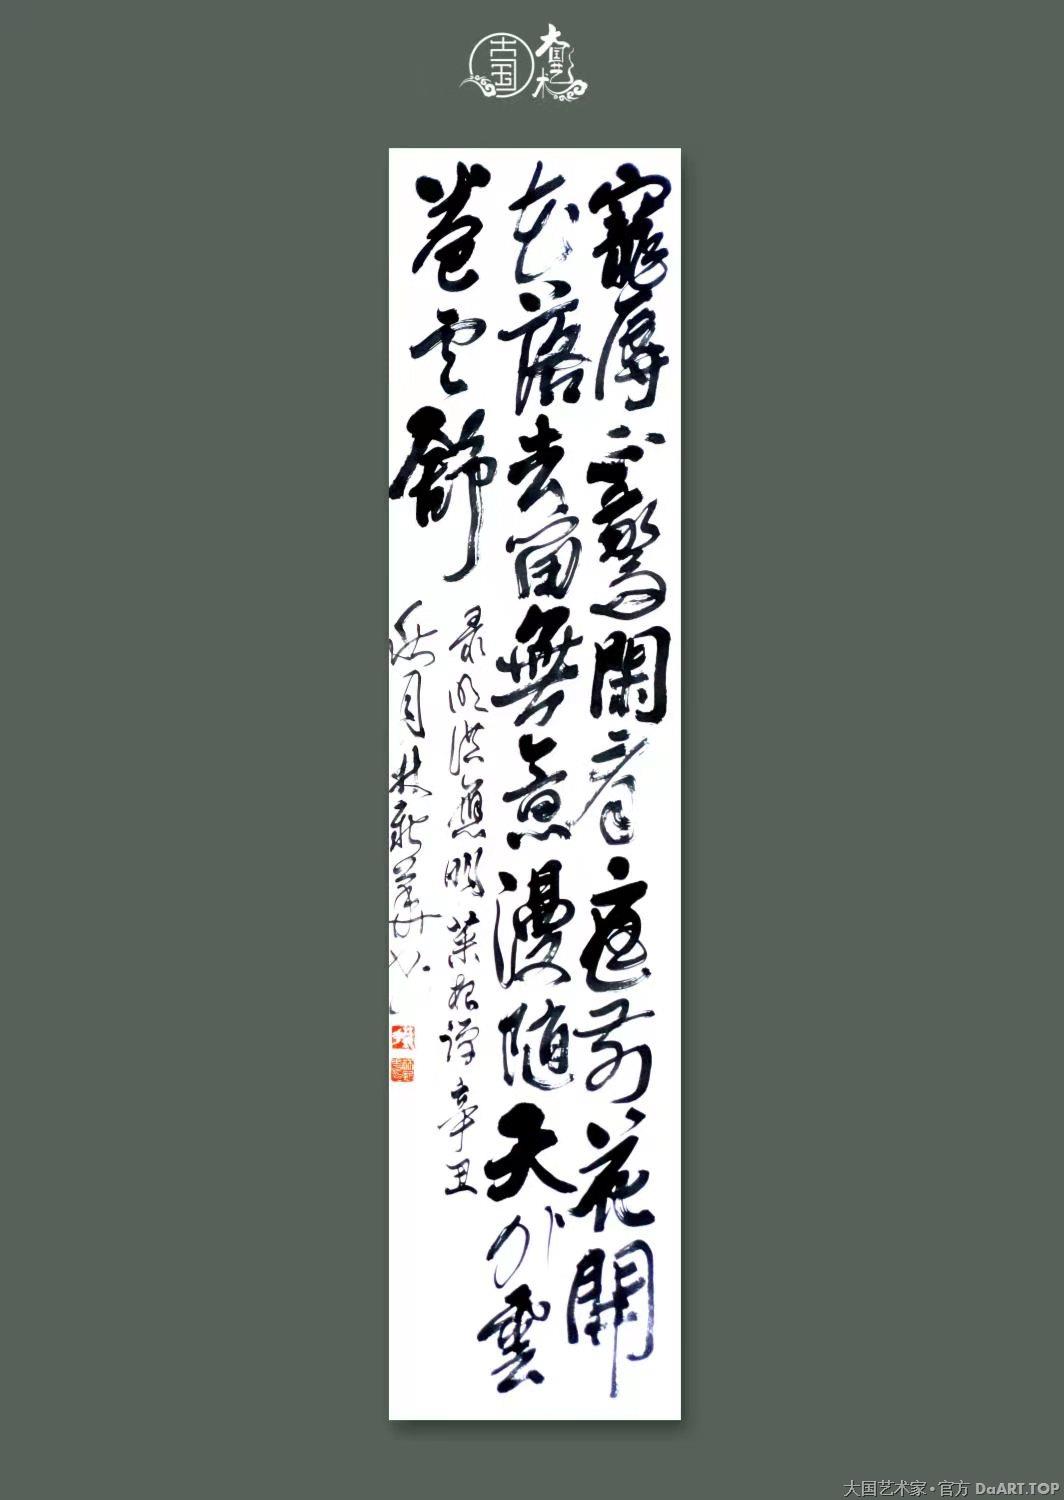 大国艺术
寵辱不驚閑看庭前花開
花落去留無意漫随天外雲
卷云舒
录明洪應明菜根譚辛丑
秋月林新華书
大国艺术家•官方 DaART.TOP